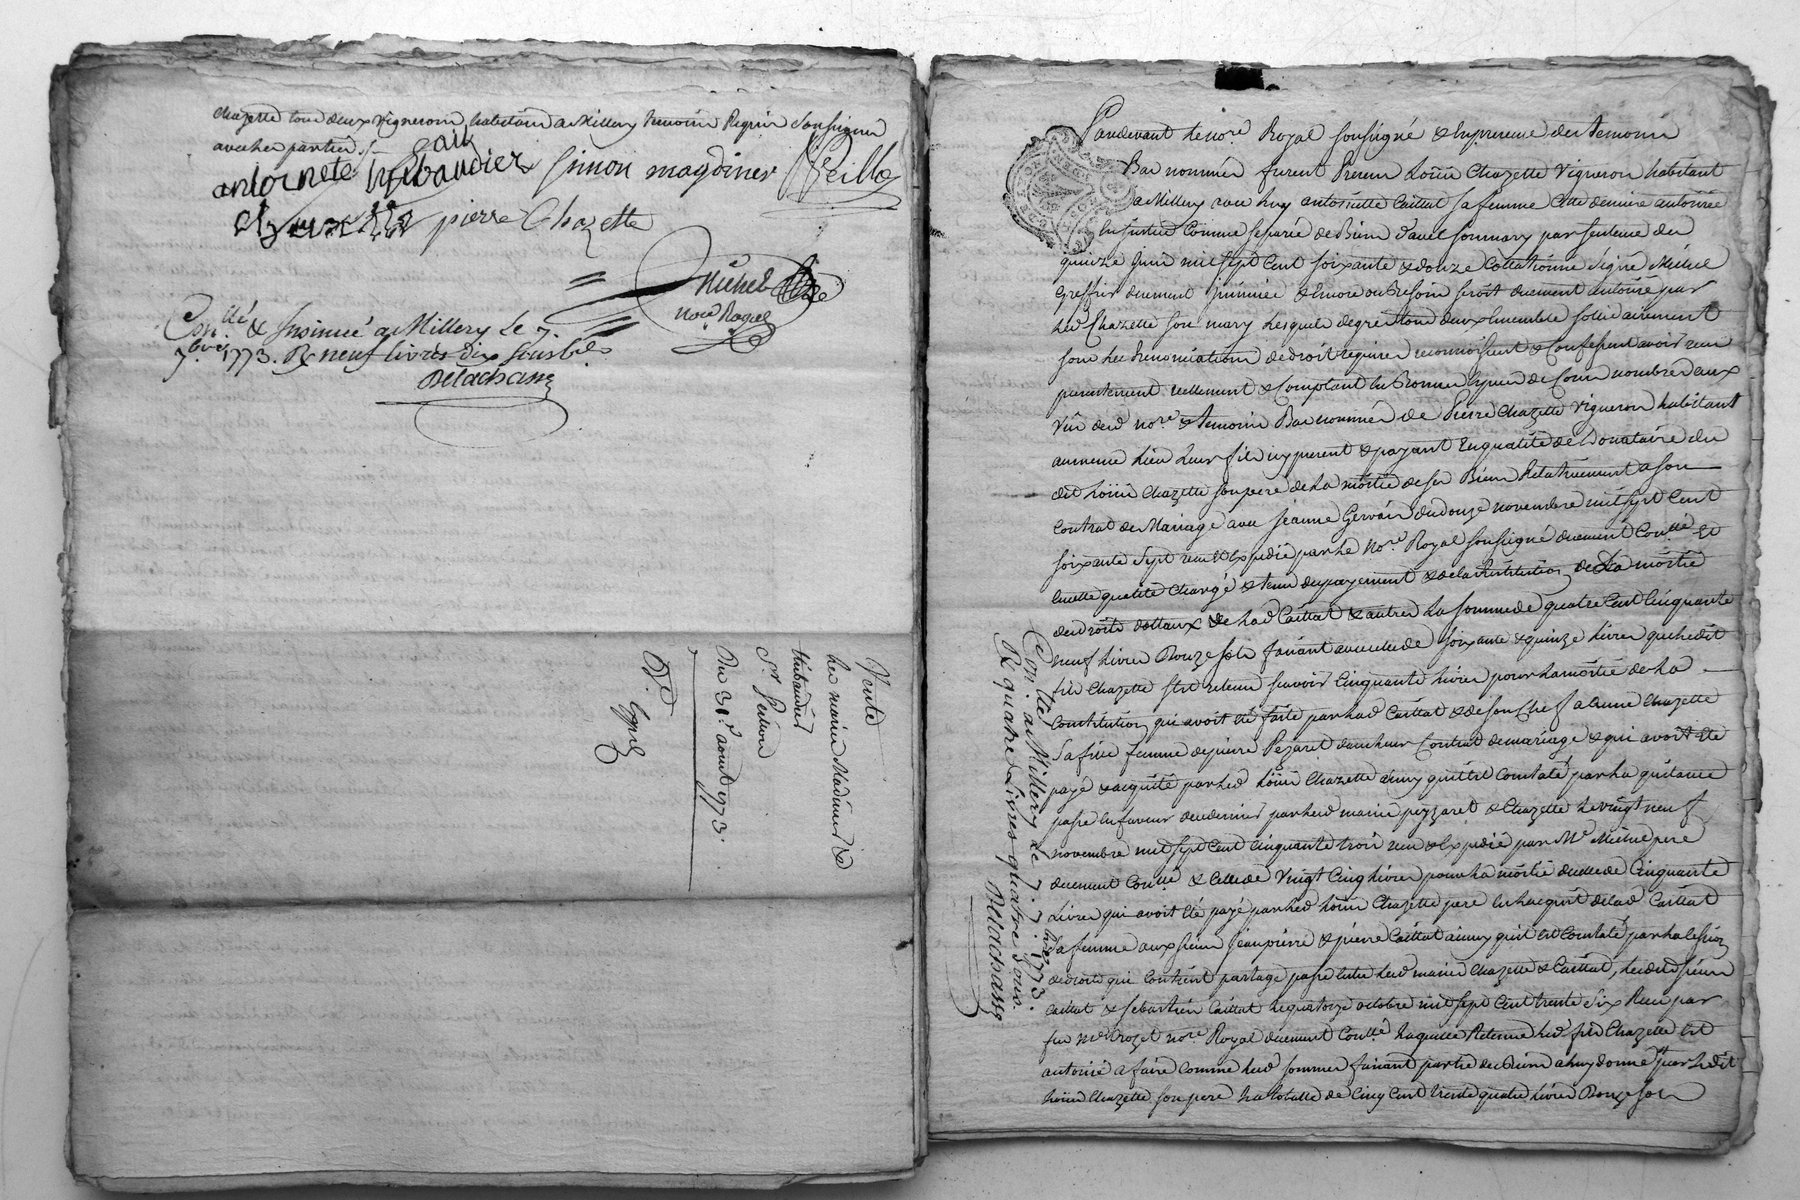 Chazette tous deux vignerons habitans a Millery temoins Requis soussignés
avec les parties
antoinete thibaudier Simon magdinier Peillon
pierre Chazette
Michel
nore Royal
Con.té & Insinué a Millery Le 7.
7.bre 1773. R. neuf livres dix sous
Delachassg
Vente
les mariés Madinier &
thibaudier
Sr. Peillon
Du 31.e aout 1773
Pardevant le nore. Royal soussigné & En presence des temoins
Bas nommés furent Presens Loüis Chazette Vigneron habitant
a Millery avec luy antoinette Caittat sa femme Cette derniere autorisée
En justice Comme separée de Biens d'avec son mary par sentence du
quinze juin mil sept Cent soixante & douze Collationné signé Michel
Greffier duement & Encore au Besoin seroit duement autorisé par
led Chazette son mary Lesquels de gré tous deux Ensemble sollidairement
sous les Renonciations de droit requises reconnoissent & Confessent avoir reçu
presentement reellement & Comptant En Bonnes Especes de Cours nombrées aux
Vûs dud nore & temoins Bas nommés de Pierre Chazette Vigneron habitant
au meme lieu Leur fils cy present & payant En qualité de Donataire du
dit Loüis Chazette son pere de La moitié de ses Biens Relativement a son
Contrat de Mariage avec Jeanne Gervais du douze novembre mil sept Cent
soixante sept reçu & Expedié par Le Nore. Royal soussigné duement Con.tté En
laquelle qualité Chargé & tenu du payement & de la Restitution de La moitié
des droits dottaux de Lad Caittat & autres La somme de quatre Cent Cinquante
neuf Livres Onze sols faisant avec celle de soixante & quinze Livres que ledit
fils Chazette s'est retenu sçavoir Cinquante Livres pour la moitié de La
Constitution qui avoit été faite par lad Caittat & de son Chef a Chazette
sa fille femme de pierre Pezaret dans leur Contrat de mariage & qui avoit été
payé & acquitté par led Loüis Chazette ainsy qu'il Est Constaté par La quittance
passé En faveur de ce dernier par lesd mariés pezzaret & Chazette Le vingt neuf
novembre mil sept Cent Cinquante trois reçu & Expedié par Me Michel pere
duement Con.tté & Celle de Vingt Cinq Livres pour La moitié de celle de Cinquante
Livres qui avoit été payé par led Loüis Chazette pere En L'acquit de lad Caittat
sa femme aux sieurs Jean pierre & pierre Caittat ainsy qu'il Est Constaté par La Cession
de droits qui Contient partage passé Entre Lesd mariés Chazette & Caittat, lesdits sieurs
Caittat & sebastien Caittat Le quatorze octobre mil sept Cent trente six Reçu par
feu Me Crozet nore Royal duement Con.tté Laquelle Retenue led fils Chazette Est
autorisé a faire Comme lesd sommes faisant partie des Biens a luy donnés par Ledit
Loüis Chazette son pere La totalle de Cinq Cent trente quatre Livres Onze sols
Con.tté. a Millery Le 7. 7.bre 1773.
R. quatre Livres quatre sous.
Delachassg